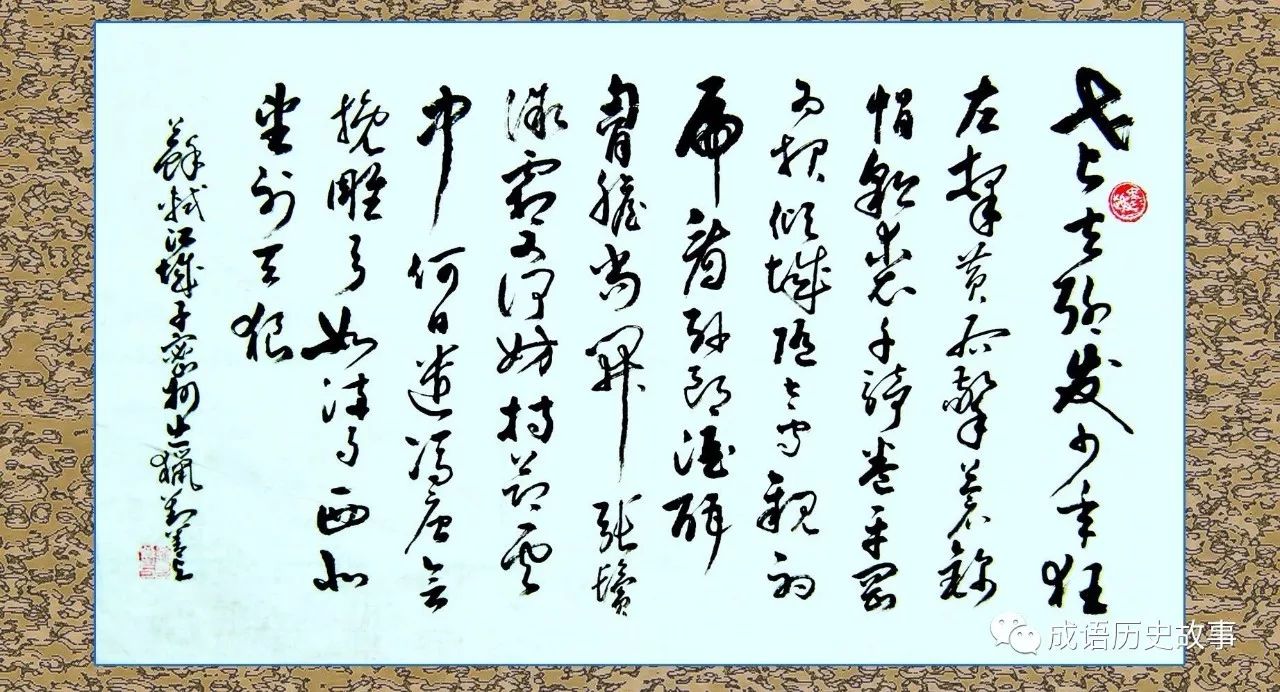 老夫聊发少年狂
左牵黄右擎苍锦
帽貂裘千骑卷平冈
为报倾城随太守亲射
虎看孙郎酒酣
胸胆尚开张鬓
微霜又何妨持节云
中何日遣冯唐会
挽雕弓如满月西北
望射天狼
苏轼江城子密州出猎
成语历史故事